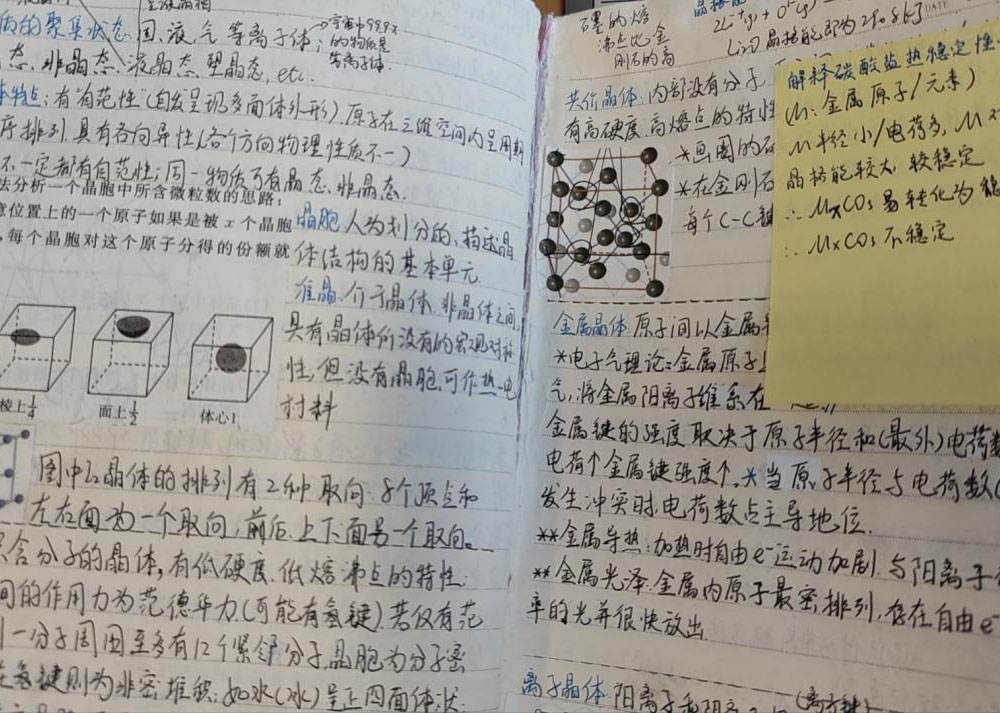 质的聚集状态 固、液、气、等离子体;
→宇宙中99.9%
的物质是
等离子体.
态、非晶态、液晶态、塑晶态, etc.
特点:有"自范性"(自发呈现多面体外形).原子在三维空间内呈周期
序排列.具有各向异性(各个方向物理性质不一)
不一定都有自范性;同一物质可有晶态、非晶态.
法分析一个晶胞中所含微粒数的思路:
意位置上的一个原子如果是被 x 个晶胞
,每个晶胞对这个原子分得的份额就
晶胞 人为划分的,描述晶
体结构的基本单元.
准晶.介于晶体.非晶体之间,
具有晶体所没有的宏观对称
性,但没有晶胞.可作热-电
材料
棱上1/4
面上1/2
体心1
图中I₂晶体的排列有2种取向.8个顶点和
左右面为一个取向,前后.上下面另一个取向。
只含分子的晶体,有低硬度.低熔沸点的特性.
间的作用力为范德华力(可能有氢键).若仅有范
则一分子周围至多有12个紧邻分子,晶胞为分子密
氢键则为非密堆积:如水(冰)呈正四面体状.
石墨的熔
沸点比金
刚石的高
2Li⁺(g) + O²⁻(g)
Li₂O晶格能即为2908kJ
共价晶体.内部没有分子,
有高硬度.高熔点的特性
*画圈的
*在金刚石
每个C-C键
金属晶体 原子间以金属
*电子气理论:金属原子
气,将金属阳离子维系在
金属键的强度取决于原子半径和(最外)电荷数
电荷↑金属键强度↑.*当原子半径与电荷数
发生冲突时,电荷数占主导地位.
**金属导热:加热时自由e⁻运动加剧.与阳离子
**金属光泽.金属内原子最密排列,存在自由e⁻
率的光并很快放出
离子晶体.阳离子和阴
(离子键)
解释碳酸盐热稳定性
(M:金属原子/元素)
M半径小/电荷多,M
晶格能较大,较稳定
∴MxCO₃易转化为稳
∴MxCO₃不稳定